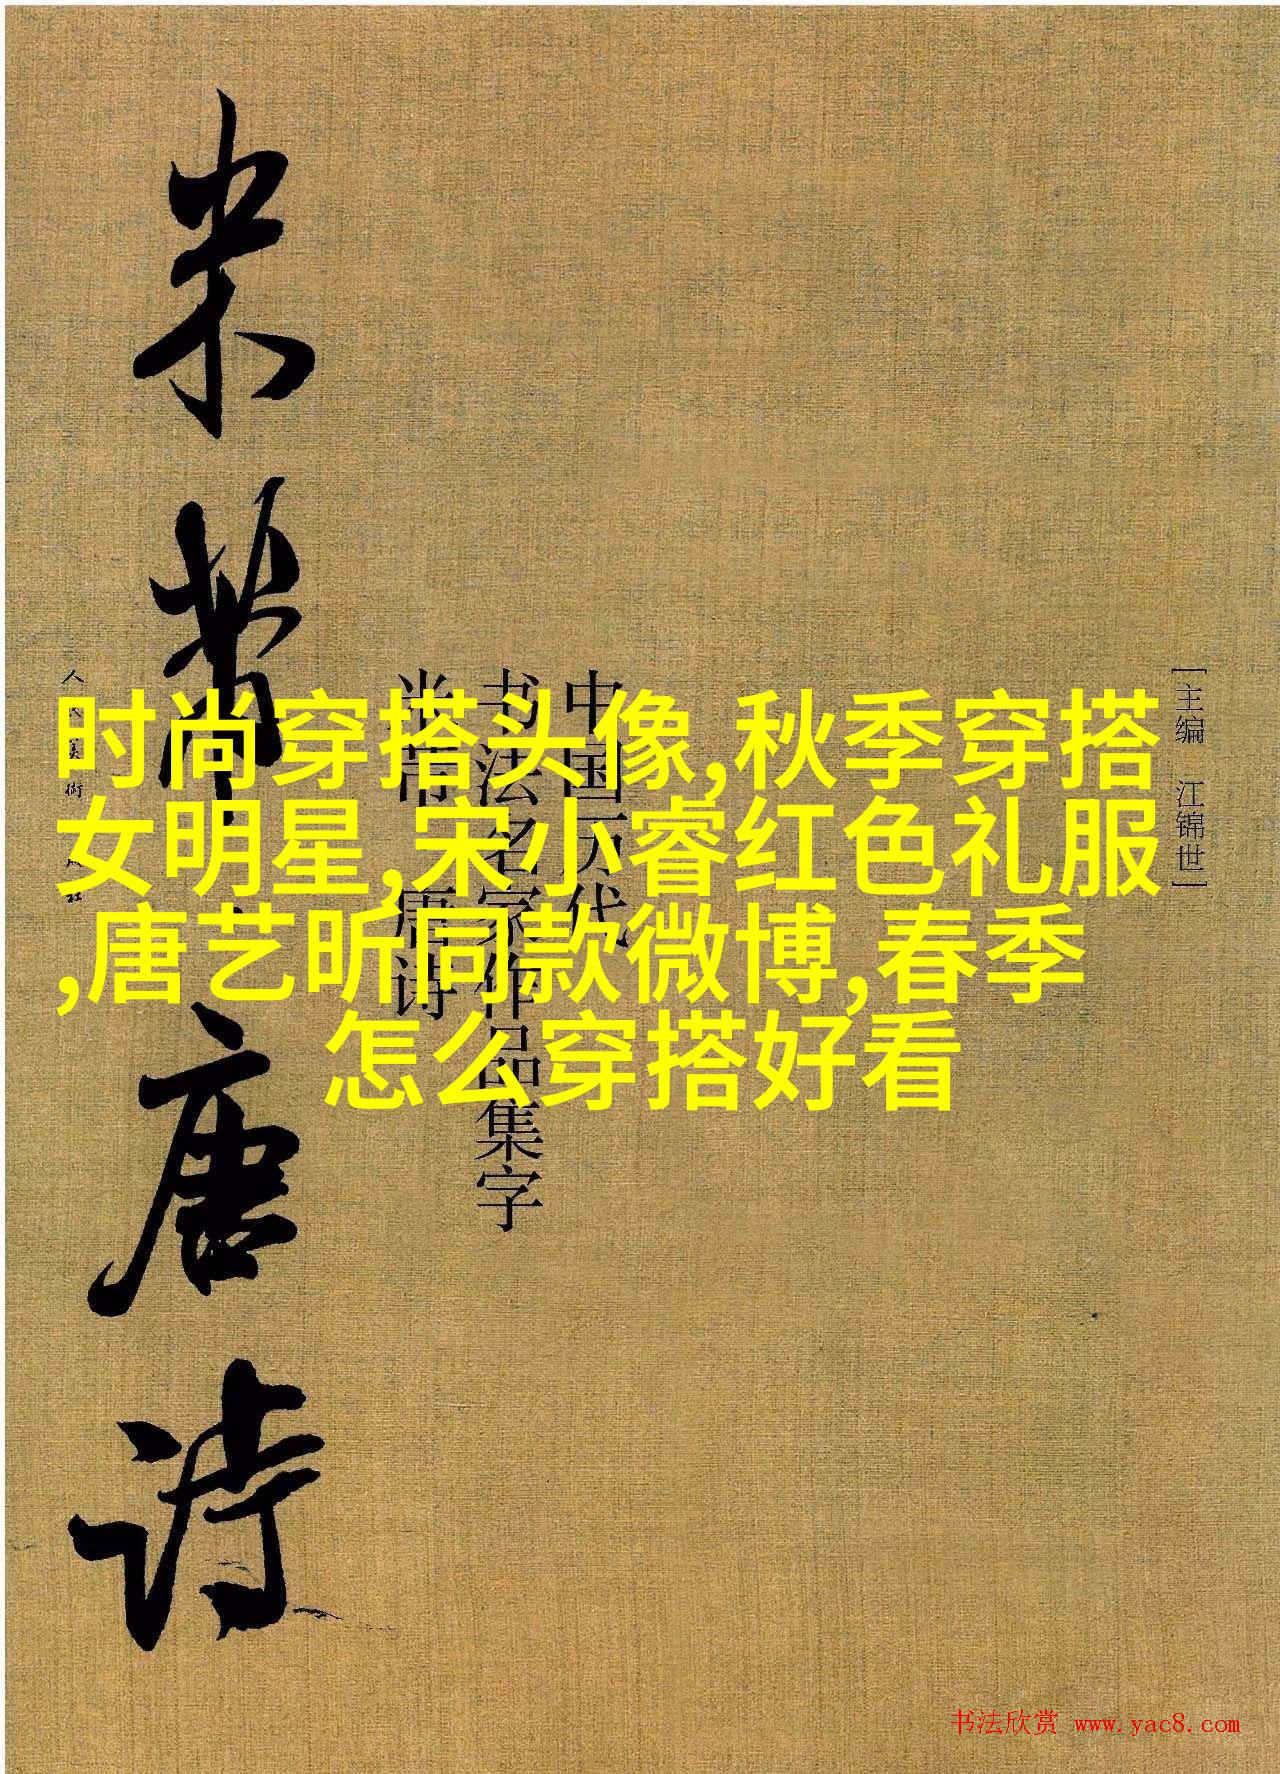 米芾唐诗
中国历代
书法名家作品集字
米芾 唐诗
[主编 江锦世]
时尚穿搭头像,秋季穿搭
女明星,宋小睿红色礼服
,唐艺昕同款微博,春季
怎么穿搭好看
书法欣赏 www.yac8.com